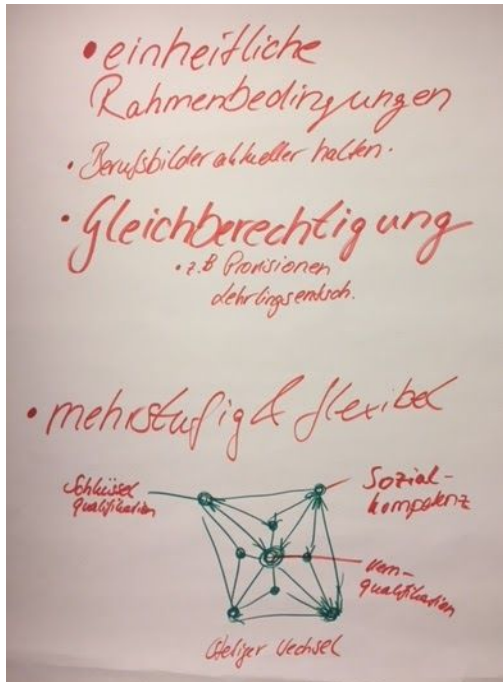 • einheitliche
Rahmenbedingungen
• Berufsbilder aktueller halten.
• Gleichberechtigung
• z.B Provisionen
Lehrlingsentsch.
• mehrstufig & flexibel
Schlüssel
qualifikation
Sozial-
kompetenz
Kern-
qualifikation
Stetiger Wechsel